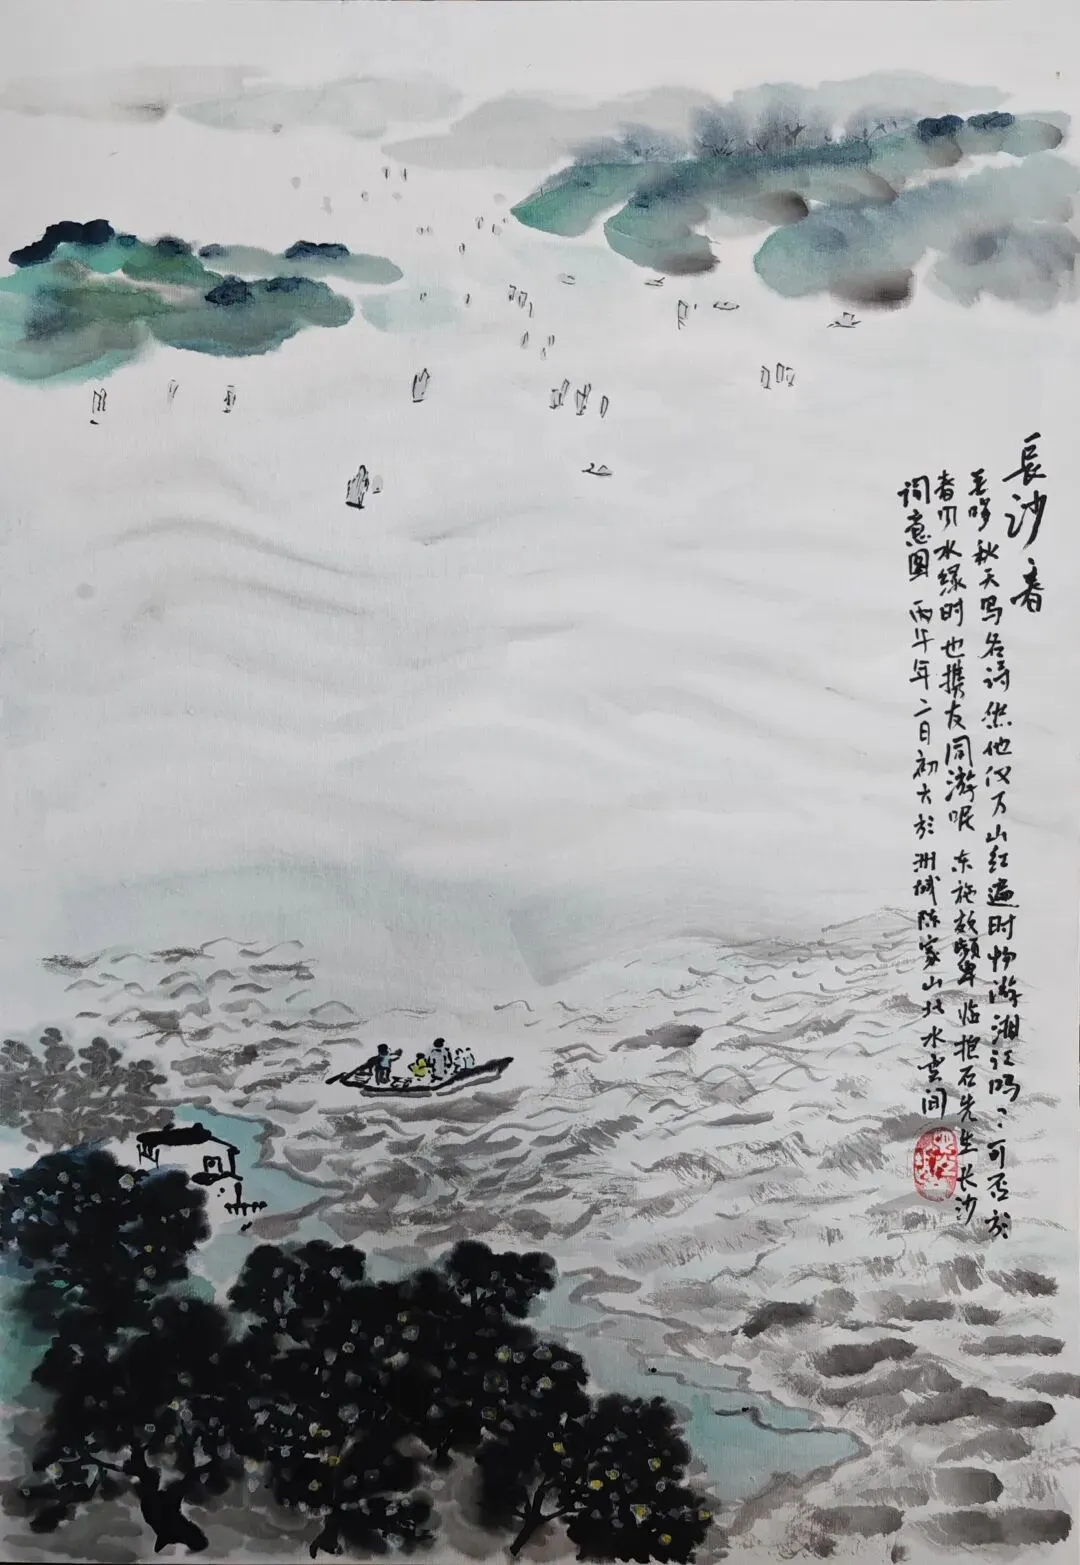 長沙、春
秋天写名诗然他仅万山红遍时畅游湘江吗、可否於
春风水绿时也携友同游呢 东施效颦 临抱石先生长沙
词意图 丙午年二月初六於洲城陈家山北水云间